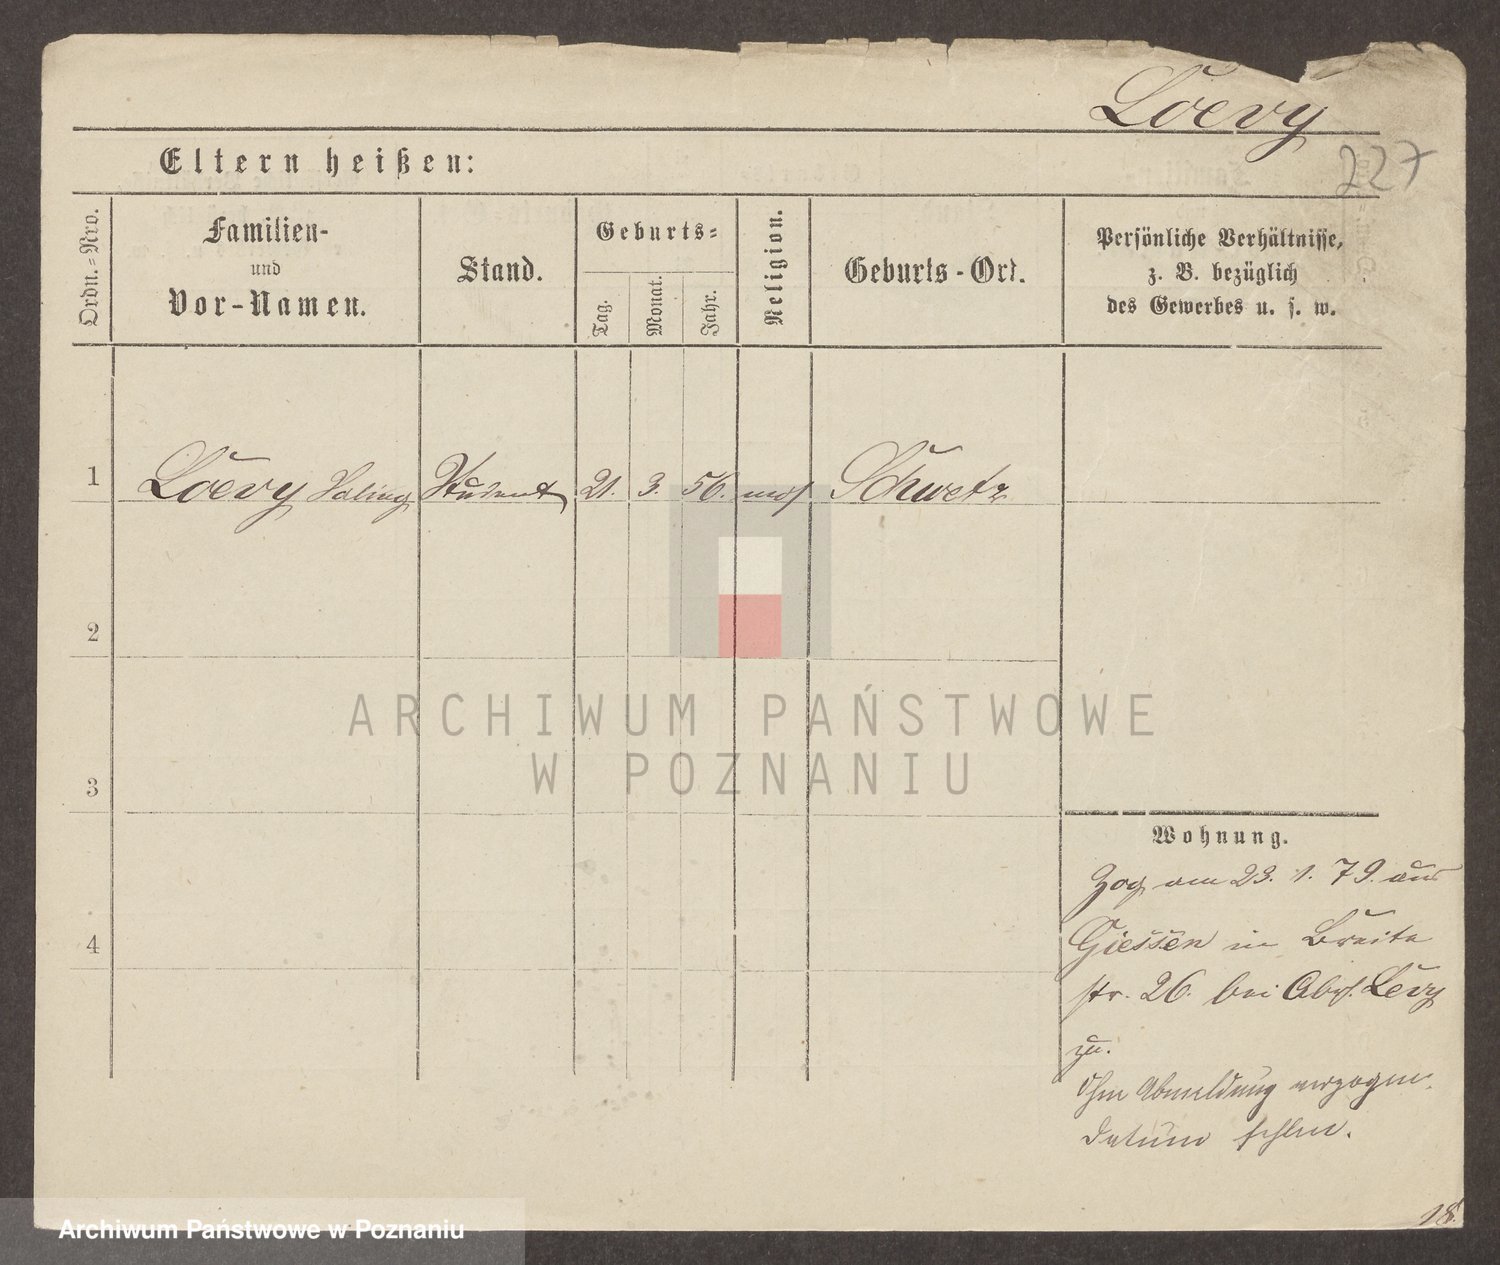 Loevy
227
Eltern heißen:
Ordn.-Nro.
Familien-
und
Vor-Namen.
Stand.
Geburts-
Tag.
Monat.
Jahr.
Religion.
Geburts-Ort.
Persönliche Verhältnisse,
z. B. bezüglich
des Gewerbes u. s. w.
1 Loevy Student 21. 3. 56. mos Schwetz
2
3
4
Wohnung.
Zog am 23. 1. 79. aus
Giessen in Breite
str. 26. bei Levy
zu.
Ohne Abmeldung verzogen.
Datum fehlen.
18.
ARCHIWUM PAŃSTWOWE
W POZNANIU
Archiwum Państwowe w Poznaniu